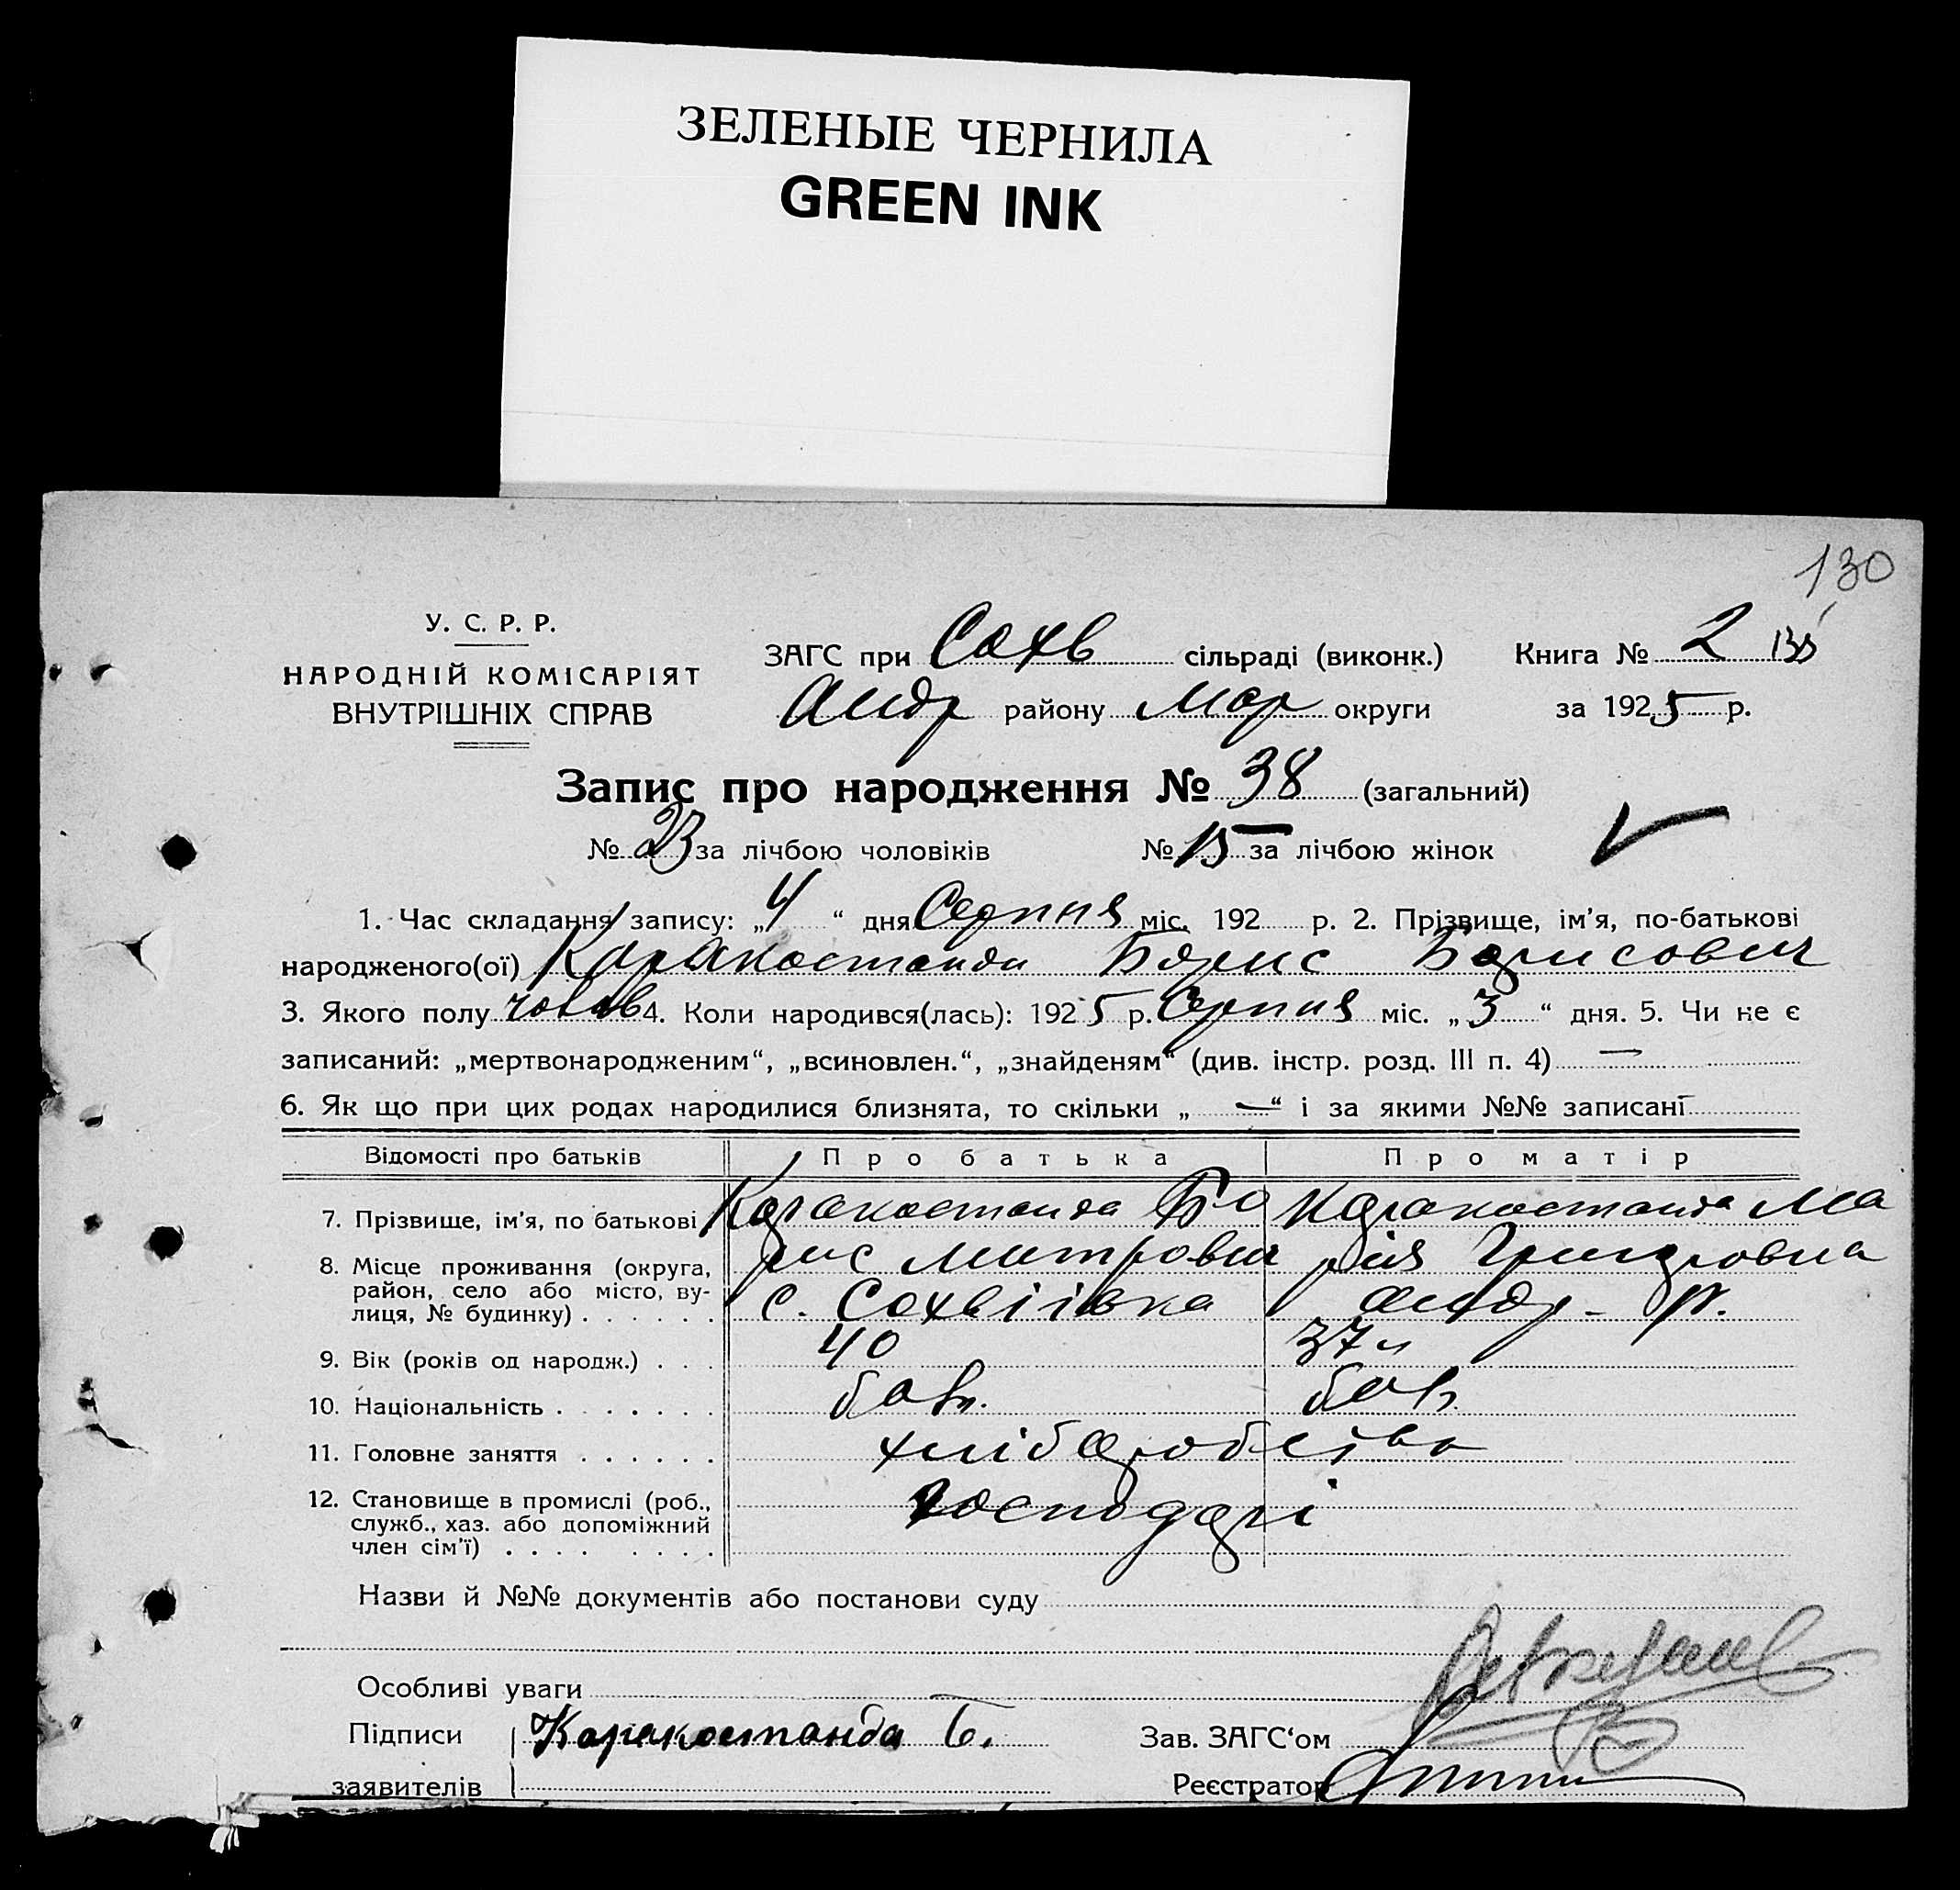 ЗЕЛЕНЫЕ ЧЕРНИЛА
GREEN INK
130
У. С. Р. Р.
НАРОДНІЙ КОМІСАРІЯТ
ВНУТРІШНІХ СПРАВ
ЗАГС при Сохв сільраді (виконк.) Книга № 2
Андр району Мар округи за 1925 р.
Запис про народження № 38 (загальний)
№ 23 за лічбою чоловіків № 15 за лічбою жінок
1. Час складання запису: „4“ дня Серпня міс. 192 р. 2. Прізвище, ім’я, по-батькові
народженого(ої) Каракостанда Борис Борисович
3. Якого полу чолов 4. Коли народився(лась): 1925 р. Серпня міс. „3“ дня. 5. Чи не є
записаний: „мертвонародженим“, „всиновлен.“, „знайденям“ (див. інстр. розд. III п. 4) —
6. Як що при цих родах народилися близнята, то скільки „—“ і за якими №№ записані
Відомості про батьків Про батька Про матір
7. Прізвище, ім’я, по батькові Каракостанда Бо Каракостанда Ма
рис Митрович рія Григоровна
8. Місце проживання (округа,
район, село або місто, ву-
лиця, № будинку) . . . . . . с. Сохвіівка Андр- р.
9. Вік (років од народж.) . . . 40 37
10. Національність . . . . . . .
11. Головне заняття . . . . . . хліборобство
12. Становище в промислі (роб., господарі
служб., хаз. або допоміжний
член сім’ї) . . . . . . . .
Назви й №№ документів або постанови суду
Особливі уваги
Підписи Каракостанда Б. Зав. ЗАГС‘ом
заявителів Реєстратор